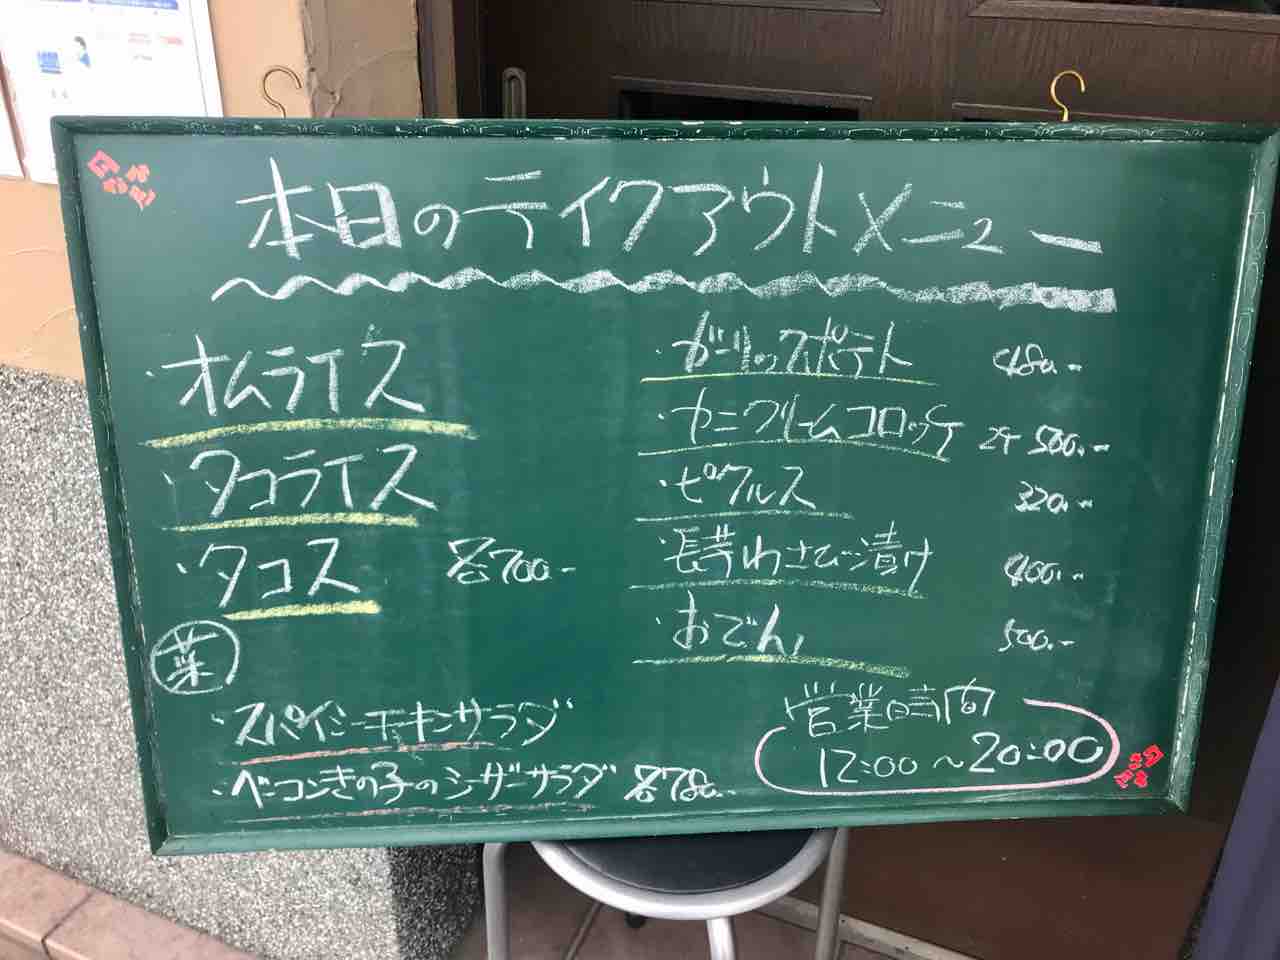 本日のテイクアウトメニュー
・オムライス
・タコライス
・タコス 各700.-
菜
・スパイシーチキンサラダ
・ベーコンきの子のシーザーサラダ 各780.-
・ガーリックスポテト 480.-
・カニクリームコロッケ 2ケ 500.-
・ピクルス 320.-
・長芋わさび漬け 400.-
・おでん 500.-
営業時間
12:00~20:00